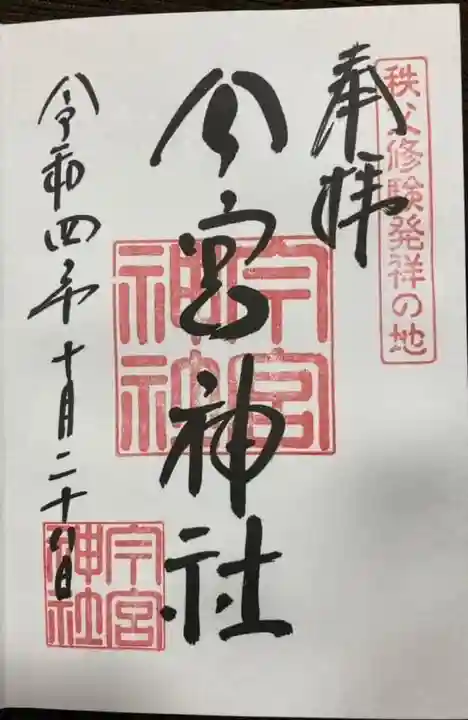 秩父修験発祥の地
奉拝
今宮神社
今宮
神社
令和四年十月二十八日
今宮
神社